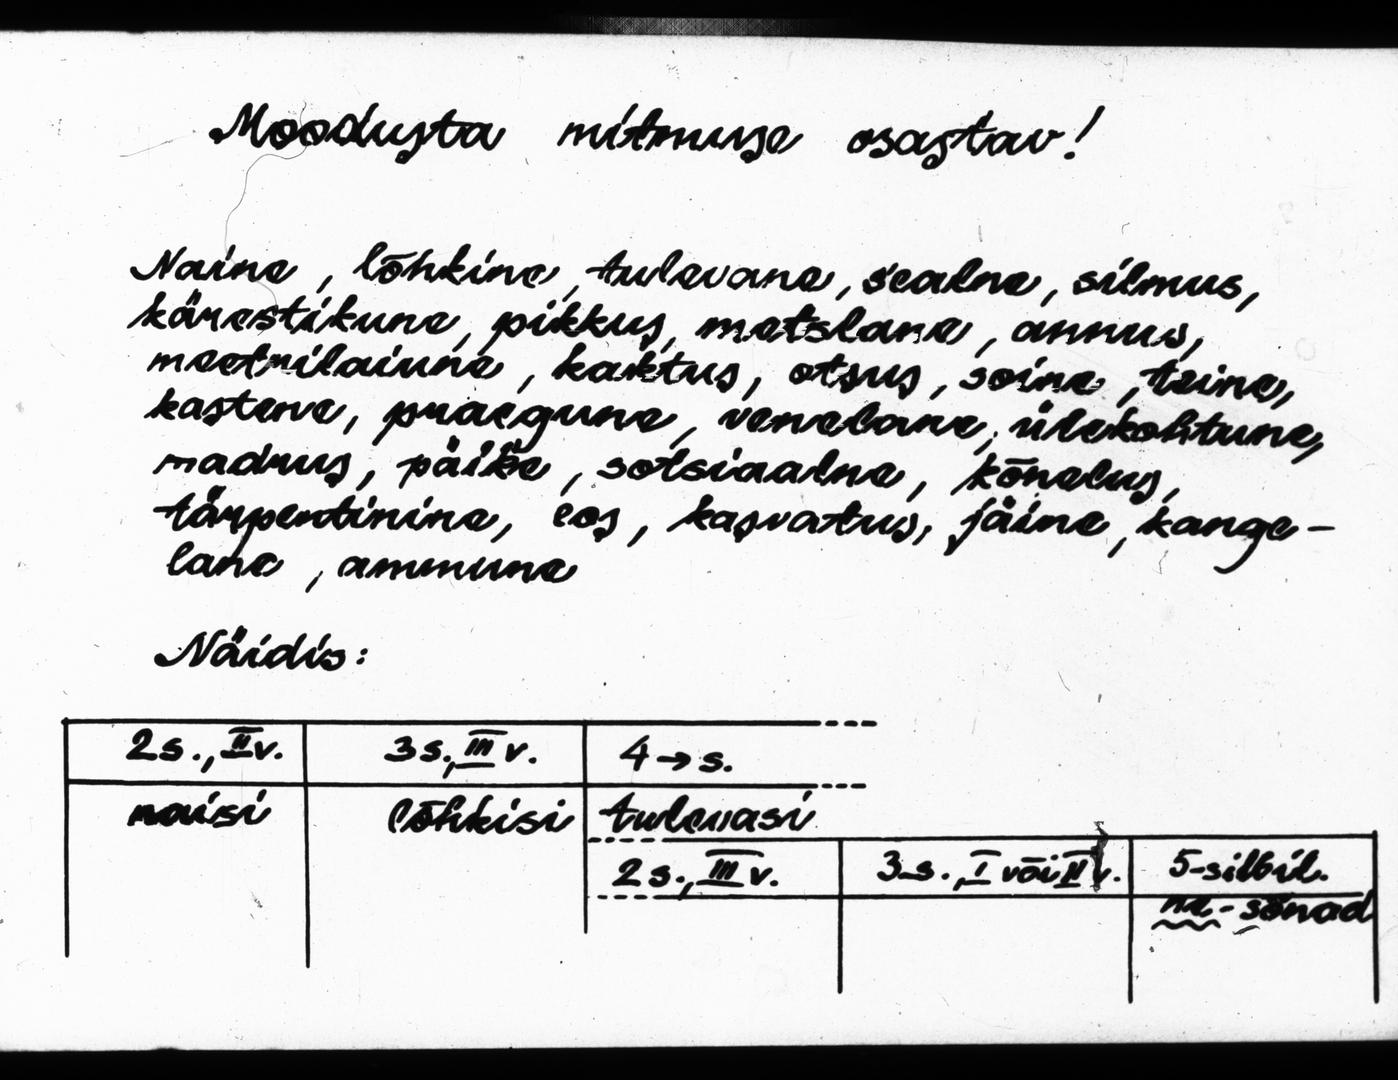 Moodusta mitmuse osastav!
Naine, lõhkine, tulevane, sealne, silmus,
kärestikune, pikkus, metslane, annus,
meetrilaiune, kaktus, otsus, soine, teine,
kastene, praegune, venelane, ülekohtune,
madrus, päike, sotsiaalne, kõnelus,
tärpentinine, eos, kasvatus, jäine, kange-
lane, ammune
Näidis:
2s., II v. 3s., III v. 4 → s.
naisi lõhkisi tulevasi
2s., III v. 3 s., I või II v. 5-silbil.
ne-sõnad